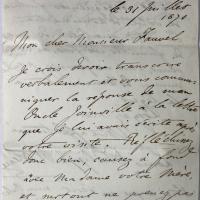 ce 31 Juillet
1870
Mon cher Monsieur Hauvel
Je crois devoir transcrire
verbalement et vous commu-
niquer la réponse de mon
Oncle Joinville à la lettre
que je lui avais écrite après
votre visite. Réfléchissez
donc bien, causez à fond
avec Madame votre Mère,
et surtout ne prenez pas